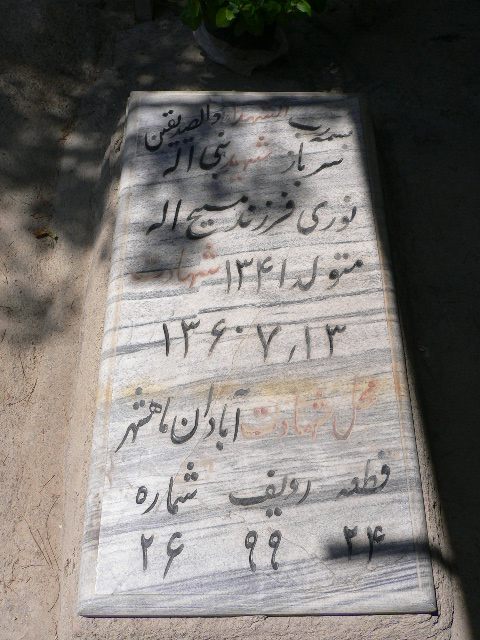 بسمه رب الشهدا والصدیقین
سرباز شهید نبی اله
نوری فرزند مسیح اله
متولد ۱۳۴۱ شهادت
۱۳٫۷٫۱۳۶۰
محل شهادت آبادان ماهشهر
قطعه ردیف شماره
۲۴ ۹۹ ۲۶